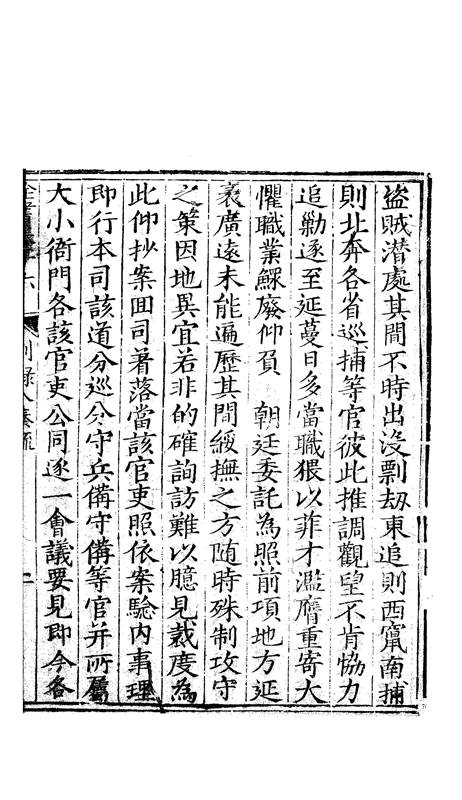 盗賊潜處其間不時出没剽刼東追則西竄南捕
則北奔各省巡捕等官彼此推調觀望不肯恊力
追勦逐至延蔓日多當職猥以菲才濫膺重寄大
懼職業鰥廢仰負　朝廷委託為照前項地方延
袤廣遠未能遍歷其間緩撫之方随時殊制攻守
之策因地異宜若非的確詢訪難以臆見裁度為
此仰抄案囬司著落當該官吏照依案驗内事理
即行本司該道分巡分守兵備守備等官并所屬
大小衙門各該官吏公同逐一會議要見即今各
别録八奏疏